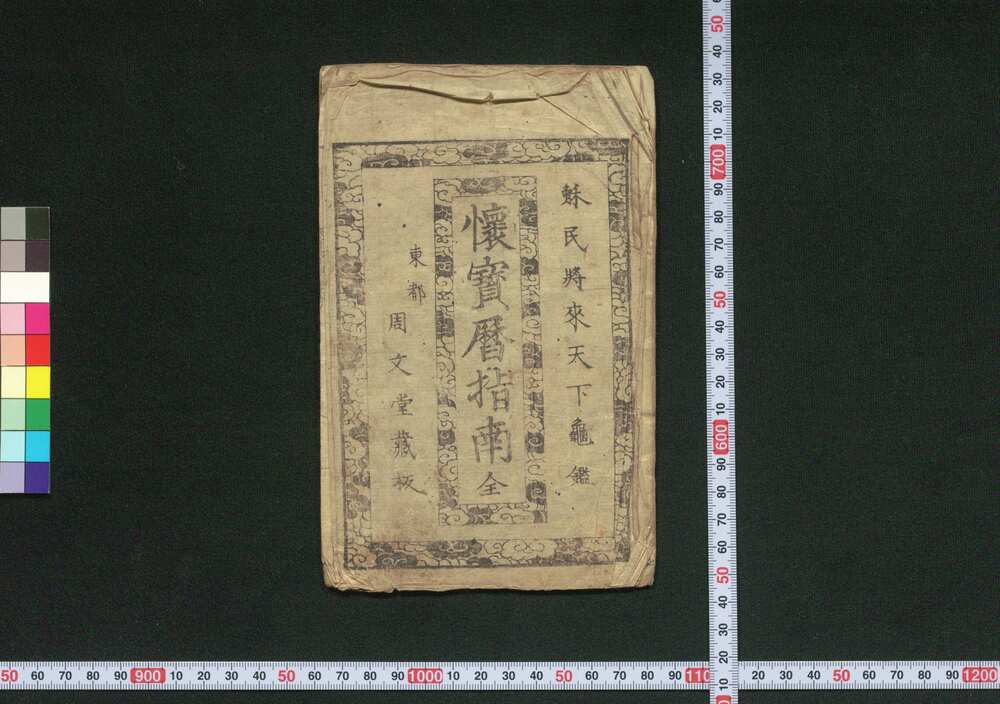 蘇民將來天下龜鑑
懷寳曆指南 全
東都
周文堂藏板
50 60 70 80 90 900 10 20 30 40 50 60 70 80 90 1000 10 20 30 40 50 60 70 80 90 110
10 20 30 40 50 60 70 80 90 1200
50 40 30 20 10 700 90 80 70 60 50 40 30 20 10 600 90 80 70 60 50 40 30 20 10